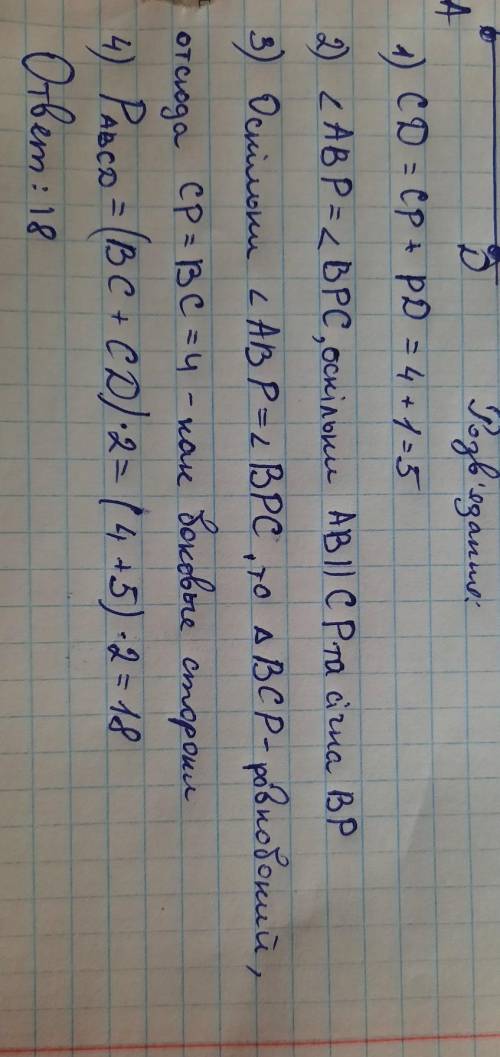 A
D
Розв'язання:
1) CD = CP + PD = 4 + 1 = 5
2) ∠ABP = ∠BPC, оскільки AB || CP та січна BP
3) Оскільки ∠ABP = ∠BPC, то △BCP - рівнобокий,
отсюда CP = BC = 4 - как боковые стороны
4) P ABCD = (BC + CD) · 2 = (4 + 5) · 2 = 18
Ответ: 18